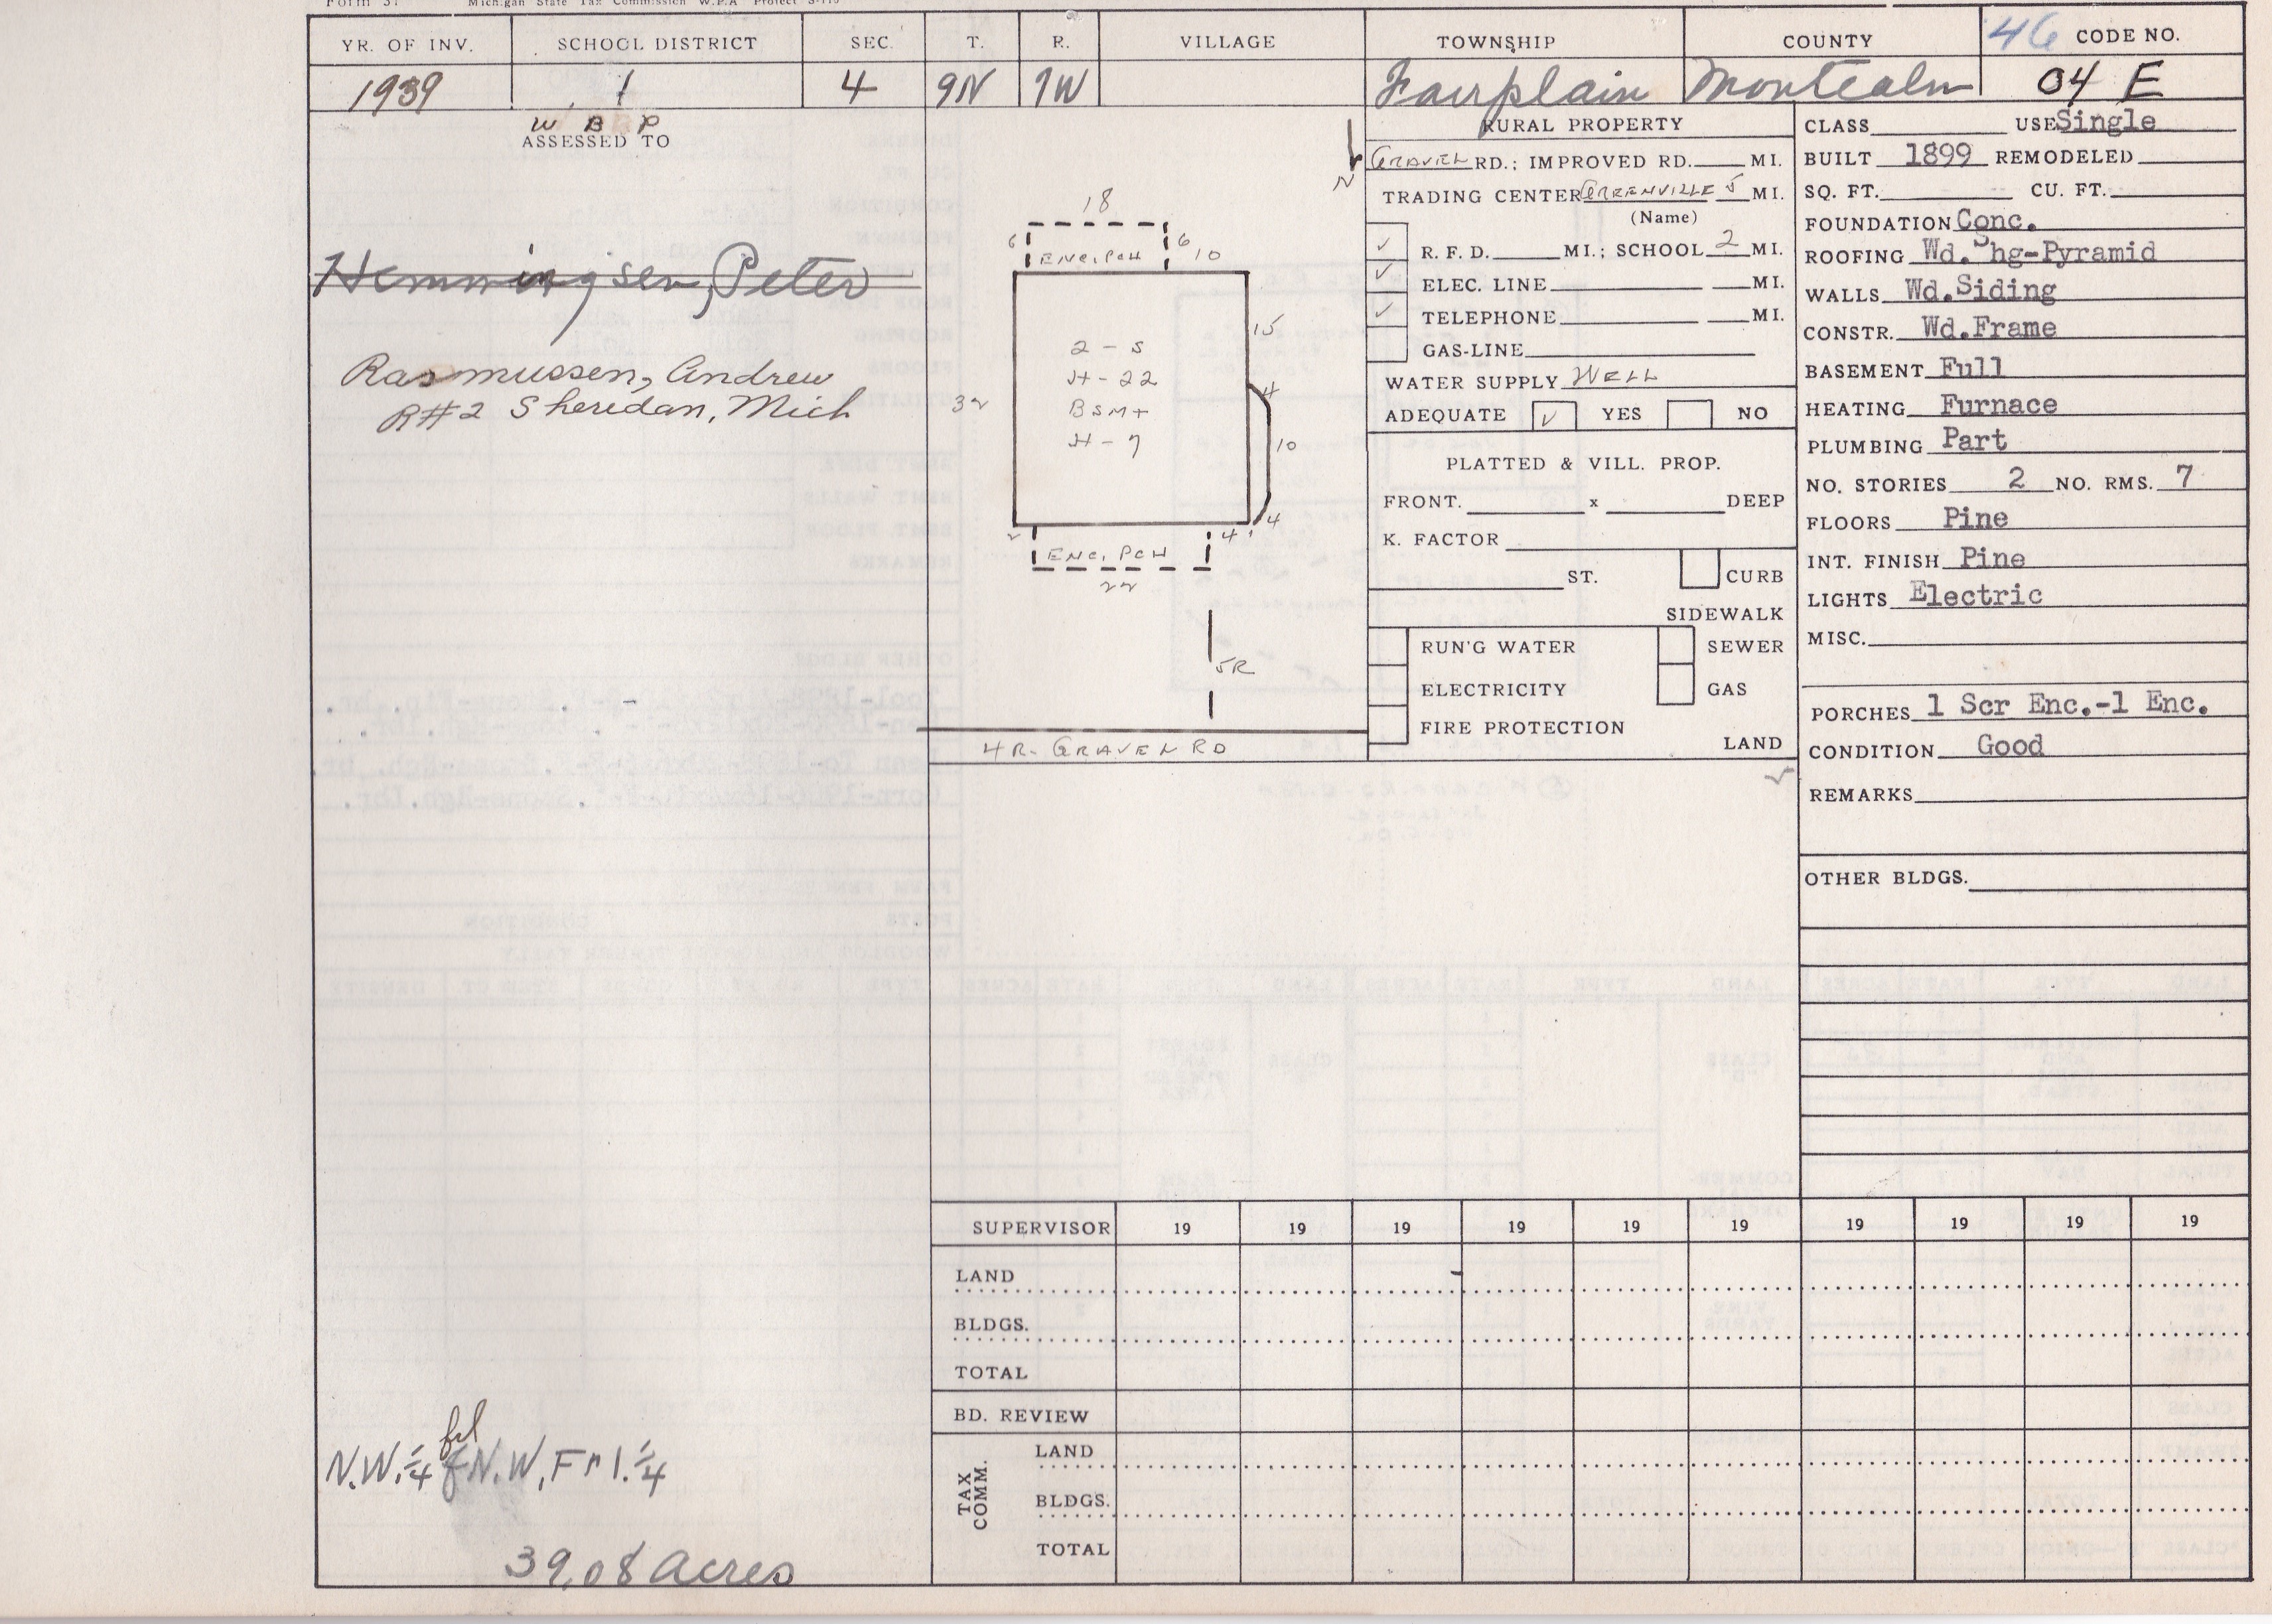 Form 37 Michigan State Tax Commission W.P.A Project S-113
YR. OF INV. SCHOOL DISTRICT SEC. T. R. VILLAGE TOWNSHIP COUNTY 46 CODE NO.
1939 1 4 9N 7W Fairplain Montcalm 04 E
W B P
ASSESSED TO
Hemmingsen, Peter
Rasmussen, Andrew
R#2 Sheridan, Mich
N.W. 1/4 fcl N.W. Frl. 1/4
39.08 Acres
N
18
6 ENC. PCH 6 10
15
2 - S
H - 22
BSMT
H - 7
32
4
10
4
2 ENC. PCH 4'
22
5R
4R - GRAVEL RD
RURAL PROPERTY
GRAVEL RD.; IMPROVED RD. MI.
TRADING CENTER GREENVILLE 5 MI.
(Name)
✓ R. F. D. MI.; SCHOOL 2 MI.
✓ ELEC. LINE MI.
✓ TELEPHONE MI.
GAS-LINE
WATER SUPPLY WELL
ADEQUATE ✓ YES NO
PLATTED & VILL. PROP.
FRONT. x DEEP
K. FACTOR
ST. CURB
SIDEWALK
RUN'G WATER SEWER
ELECTRICITY GAS
FIRE PROTECTION
LAND
✓
CLASS USE Single
BUILT 1899 REMODELED
SQ. FT. CU. FT.
FOUNDATION Conc.
ROOFING Wd.Shg-Pyramid
WALLS Wd.Siding
CONSTR. Wd.Frame
BASEMENT Full
HEATING Furnace
PLUMBING Part
NO. STORIES 2 NO. RMS. 7
FLOORS Pine
INT. FINISH Pine
LIGHTS Electric
MISC.
PORCHES 1 Scr Enc.-1 Enc.
CONDITION Good
REMARKS
OTHER BLDGS.
SUPERVISOR 19 19 19 19 19 19 19 19 19 19
LAND
BLDGS.
TOTAL
BD. REVIEW
TAX COMM.
LAND
BLDGS.
TOTAL